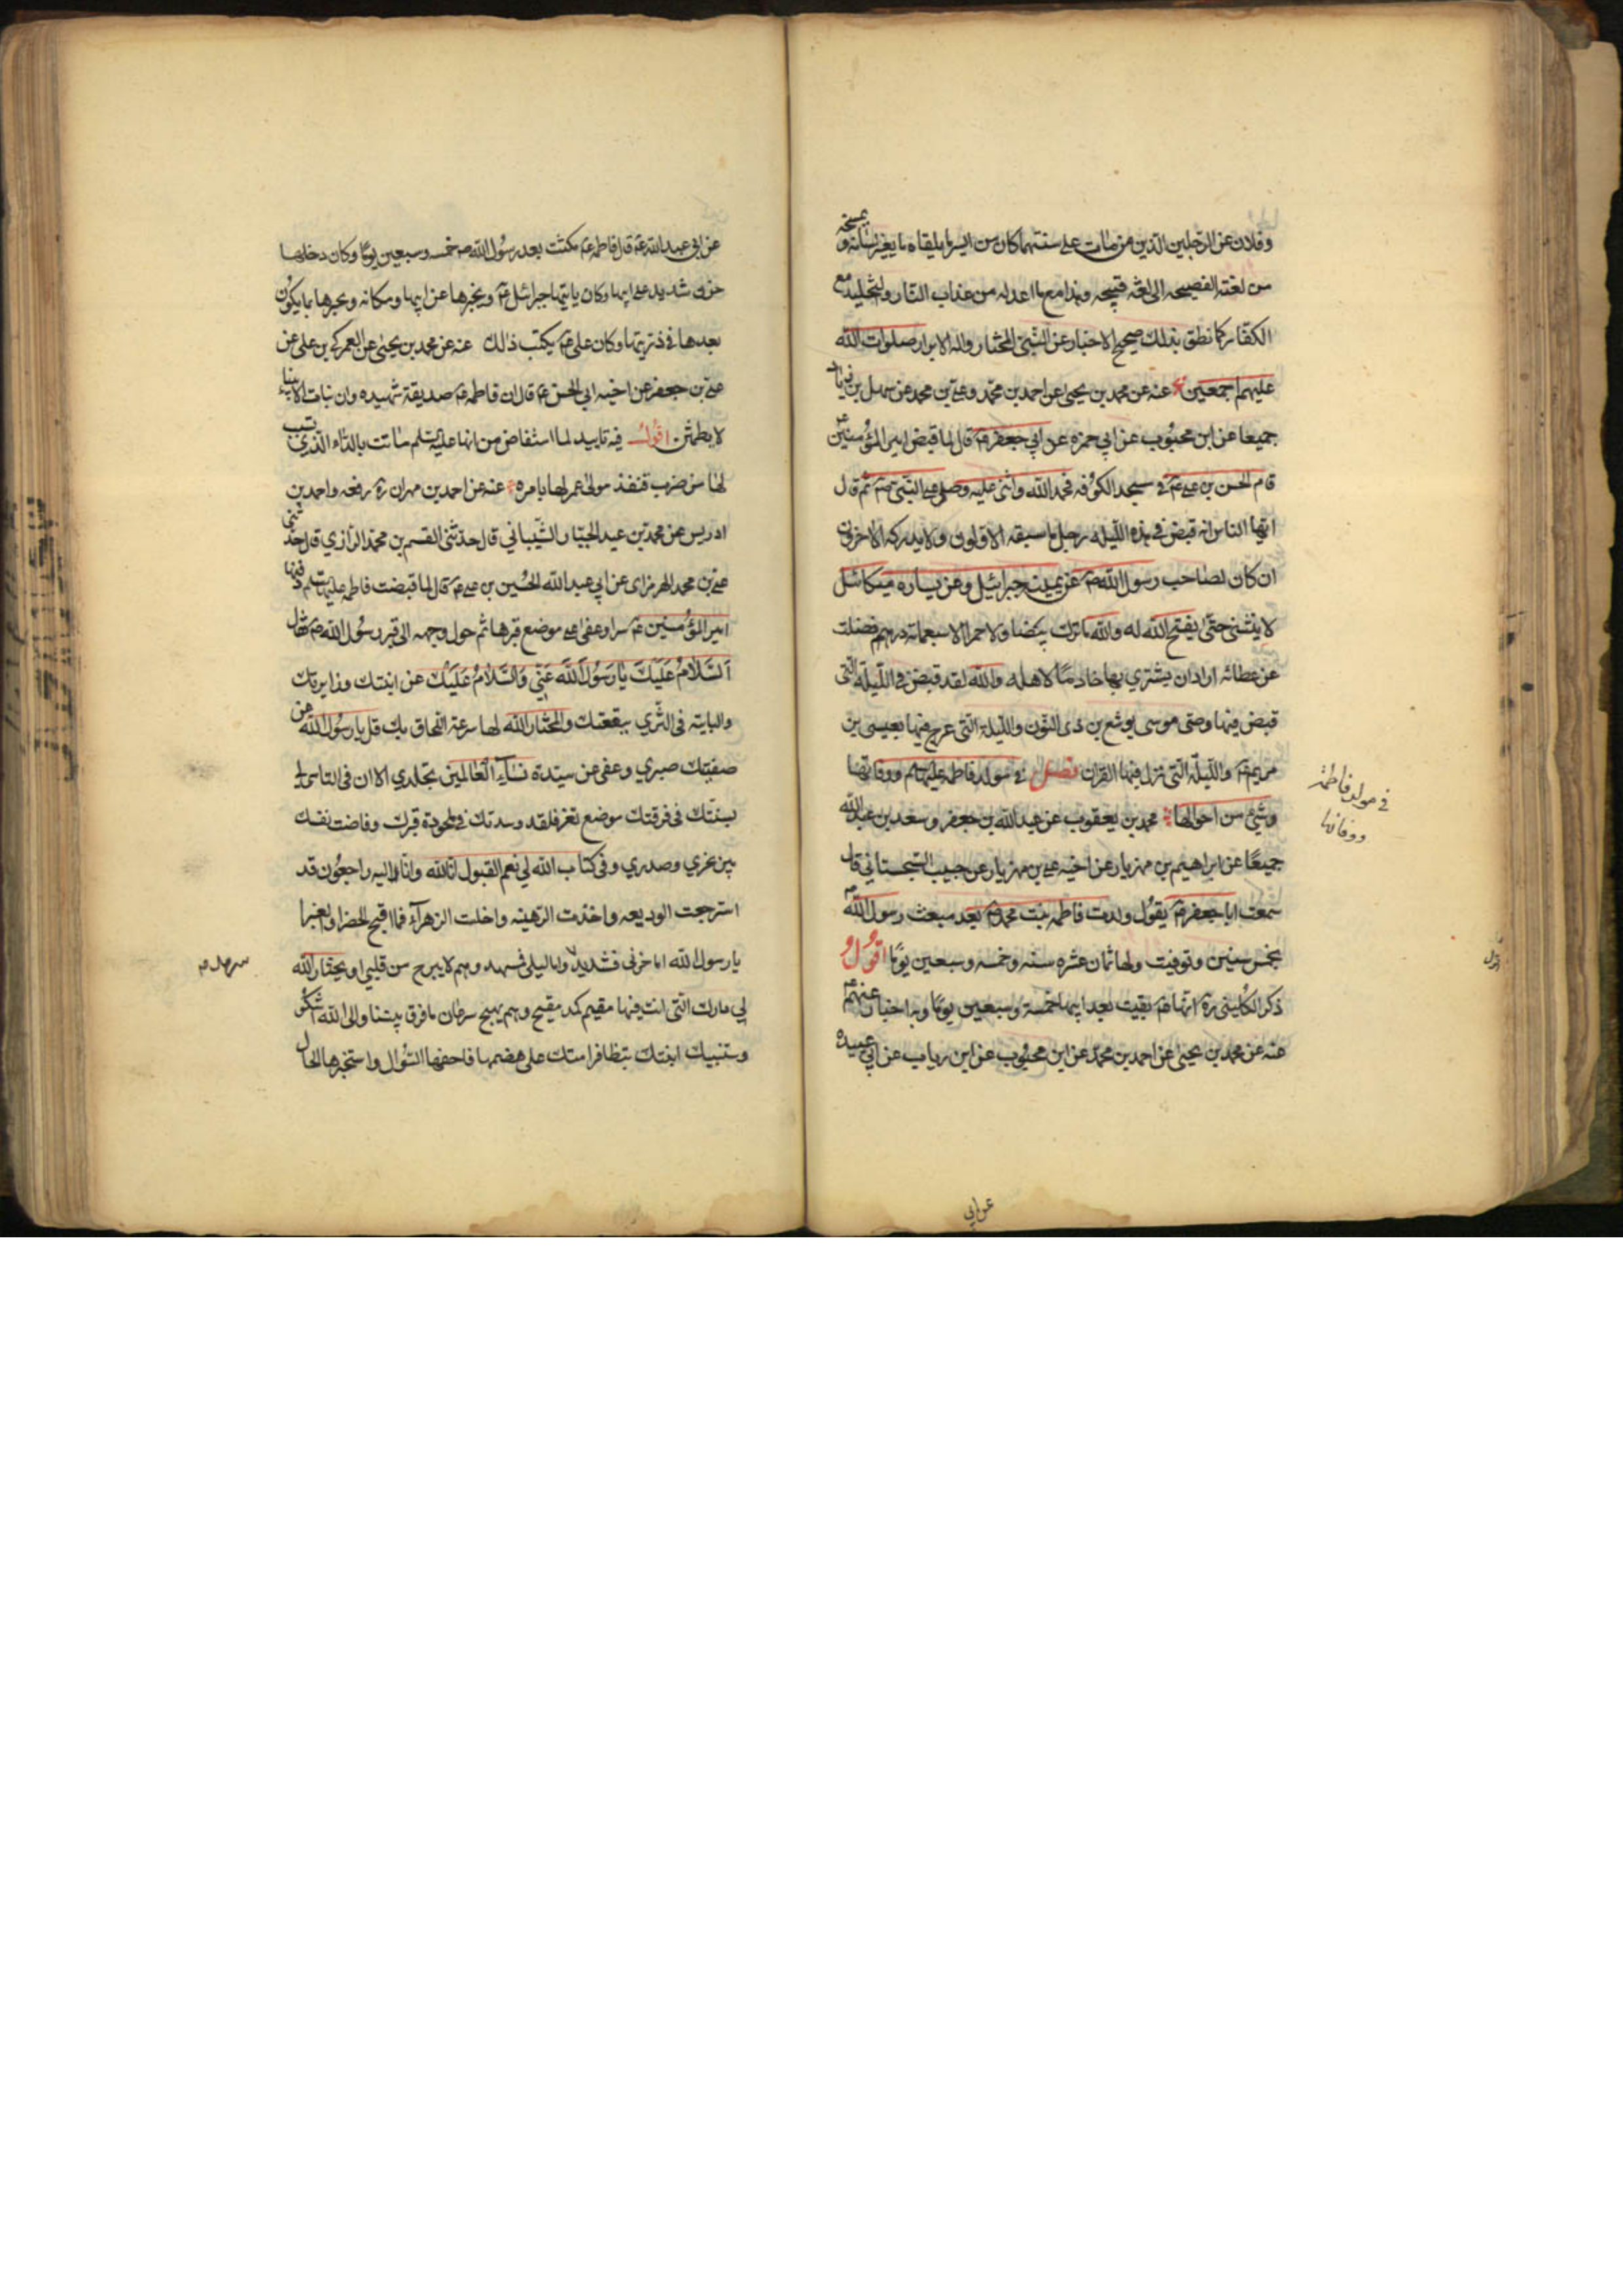 وفلان عن الرجلين الذين من مات على سنتهما كان من ايسر ما يلقاه ما يغير لسانه و
من لغته الفصيحه الى لغة قبيحه وهذا مع ما اعد له من عذاب النار والتخليد مع
الكفار كما نطق بذلك صحيح الاخبار عن النبي المختار واله الابرار صلوات الله
عليهم اجمعين عنه عن محمد بن يحيى عن احمد بن محمد وعلي بن محمد عن سهل بن زياد
جميعا عن ابن محبوب عن ابي حمزه عن ابي جعفر ع قال لما قبض امير المؤمنين ع
قام الحسن بن علي ع في مسجد الكوفه فحمد الله واثنى عليه وصلى على النبي ص ثم قال
ايها الناس انه قبض في هذه الليله رجل ما سبقه الاولون ولا يدركه الاخرون
ان كان لصاحب رسول الله ص عن يمينه جبرائيل وعن يساره ميكائيل
لا ينثني حتى يفتح الله له والله ما ترك بيضا ولا حمرا الا سبعمائة درهم فضلت
عن عطائه اراد ان يشتري بها خادما لاهله والله لقد قبض في الليلة التى
قبض فيها وصى موسى يوشع بن نون والليلة التى عرج فيها بعيسى بن
مريم ع والليلة التى نزل فيها القران فصل في مولد فاطمه عليها السلم ووفاتها
وشيء من احوالها محمد بن يعقوب عن عبد الله بن جعفر وسعد بن عبد الله
جميعا عن ابراهيم بن مهزيار عن اخيه علي بن مهزيار عن حبيب السجستاني قال
سمعت ابا جعفر ع يقول ولدت فاطمه بنت محمد ص بعد مبعث رسول الله ص
بخمس سنين وتوفيت ولها ثمان عشره سنه وخمسه وسبعين يوما اقول و
ذكر الكليني ره انها ع بقيت بعد ابيها خمسة وسبعين يوما وبه اخبار عنهم ع
عنه عن محمد بن يحيى عن احمد بن محمد عن ابن محبوب عن ابن رياب عن ابي عبيده
في مولد فاطمة
ووفاتها
عن ابي
عن ابي عبد الله ع قال فاطمه ع مكثت بعد رسول الله ص خمسه وسبعين يوما وكان دخلها
حزن شديد على ابيها وكان ياتيها جبرائيل ع ويخبرها عن ابيها ومكانه ويخبرها بما يكون
بعدها في ذريتها وكان علي ع يكتب ذالك عنه عن محمد بن يحيى عن العمركي بن علي عن
علي بن جعفر عن اخيه ابي الحسن ع قال ان فاطمه ع صديقة شهيده وان بنات الانبياء
لا يطمثن اقول فيه تاييد لما استفاض من انها عليها السلم ماتت بالداء الذي تسبب
لها من ضرب قنفذ مولى عمر لها بامره عنه عن احمد بن مهران ره رفعه واحمد بن
ادريس عن محمد بن عبد الجبار الشيباني قال حدثني القسم بن محمد الرازي قال حدثني
علي بن محمد الهرمزاى عن ابي عبد الله الحسين بن علي ع قال لما قبضت فاطمه عليها السلم دفنها
امير المؤمنين ع سرا وعفى على موضع قبرها ثم حول وجهه الى قبر رسول الله ص فقال
السلام عليك يا رسول الله عني والسلام عليك عن ابنتك وزايرتك
والبايتة فى الثرى ببقعتك والمختار الله لها سرعة اللحاق بك قل يا رسول الله عن
صفيتك صبري وعفى عن سيدة نساء العالمين تجلدي الا ان فى التاسي لي
بسنتك فى فرقتك موضع تعز فلقد وسدتك في ملحودة قبرك وفاضت نفسك
بين نحري وصدري وفى كتاب الله لي نعم القبول انا لله وانا اليه راجعون قد
استرجعت الوديعه واخذت الرهينه واخلست الزهراء فما اقبح الخضرا والغبرا
يا رسول الله اما حزنى فشديد واما ليلى فمسهد وهم لا يبرح من قلبي او يختار الله
لي دارك التى انت فيها مقيم كمد مقيح وهم مهيج سرعان ما فرق بيننا والى الله اشكو
وستنبيك ابنتك بتظافر امتك على هضمها فاحفها السؤال واستخبرها الحال
سرمد م